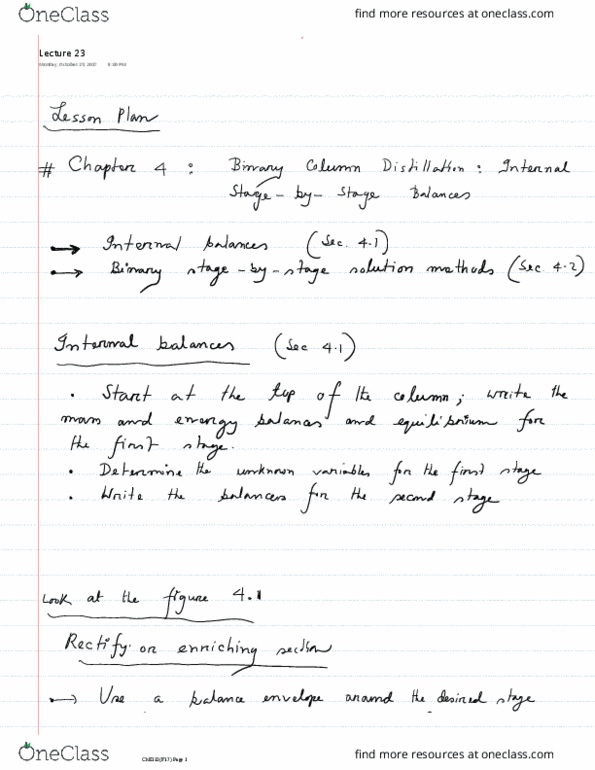 OneClass find more resources at oneclass.com
Lecture 23
Lesson Plan
# Chapter 4 : Binary Column Distillation : Internal
Stage-by-Stage Balances
→ Internal balances (Sec. 4.1)
→ Binary stage-by-stage solution methods (Sec 4.2)
Internal balances (Sec 4.1)
• Start at the top of the column; write the
mass and energy balances and equilibrium for
the first stage.
• Determine the unknown variables for the first stage
• Write the balances for the second stage
Look at the figure 4.1
Rectify. or enriching section
→ Use a balance envelope around the desired stage
OneClass find more resources at oneclass.com